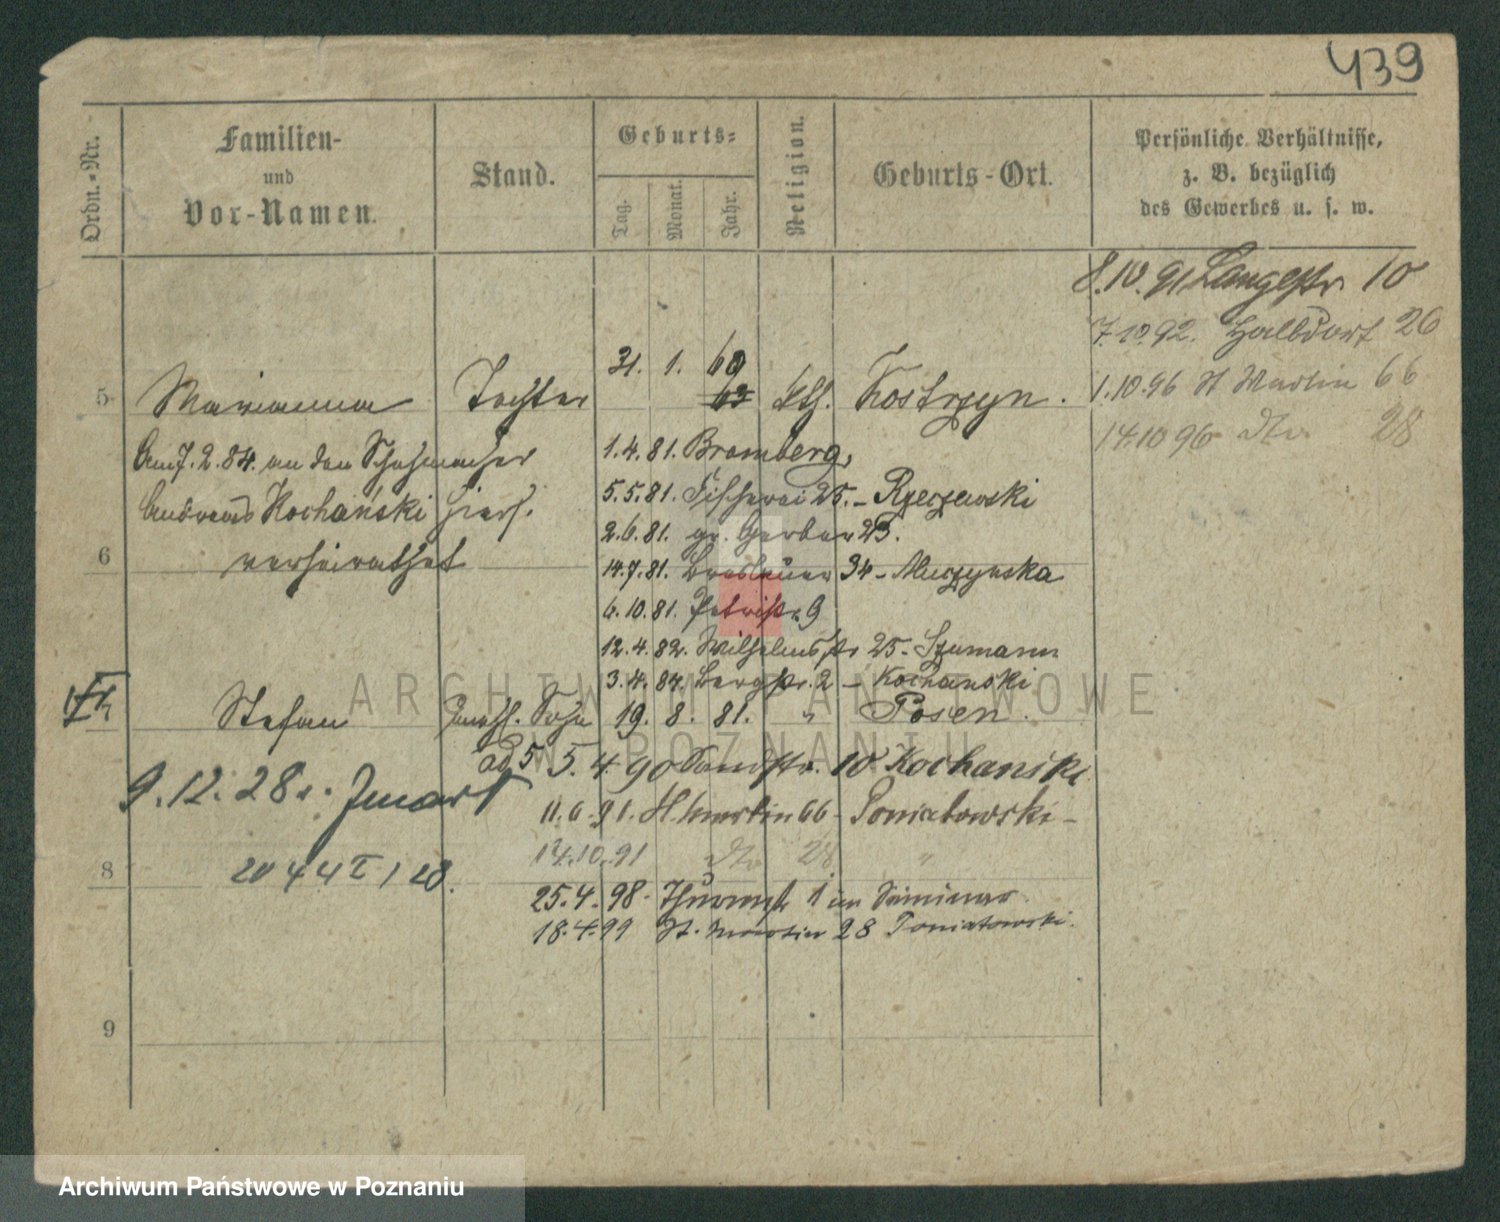 439
Ordn.-Nr.
Familien-
und
Vor-Namen.
Stand.
Geburts-
Tag.
Monat.
Jahr.
Religion.
Geburts-Ort.
Persönliche Verhältnisse,
z. B. bezüglich
des Gewerbes u. s. w.
8.10.91 Langestr. 10
7.10.92. Halbdorf 26
1.10.96 St Martin 66
14.10 96 dto 28
31. 1. 60
63
5 Marianna Tochter kth. Kostrzyn.
Am 7.2.84. an den Schuhmacher
Andreas Kochański hiers.
6 verheirathet
1.4.81. Bromberg,
5.5.81. Fischerei 25. - Rzeczewski
2.6.81. gr. Gerber 23.
14.7.81. Breslauer 34 - Muczynska
6.10.81. Petristr. 9
12.4.82. Wilhelmstr 25 - Szumann
3.4.84. Bergstr. 2 - Kochanski
Stefan Sohn 19. 8. 81. " Posen.
ad 5 5. 4. 90 Sandstr. 10 Kochanski
9.12.28
11.6.91. St. Martin 66 - Poniatowski -
14.10.91 dto 28 "
8
25.4.98. Thurmstr 1 im Seminar
18.4.99 St. Martin 28 Poniatowski.
9
ARCHIWUM PAŃSTWOWE
W POZNANIU
Archiwum Państwowe w Poznaniu